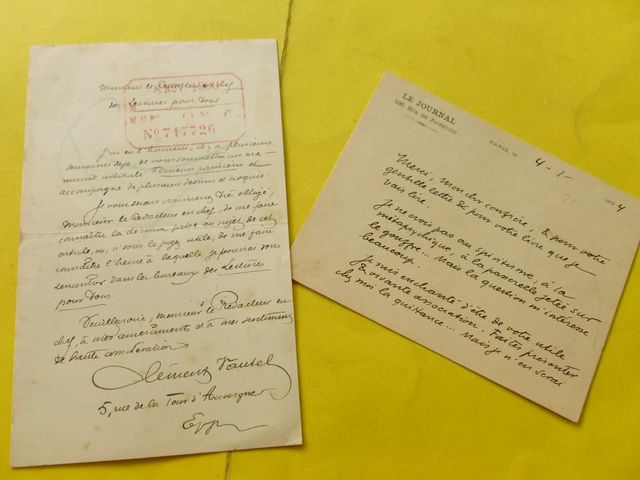 Monsieur le Rédacteur en chef
des Lectures pour Tous
No 747726
J'ai eu l'honneur, il y a plusieurs
semaines déjà, de vous soumettre un ma-
nuscrit intitulé Flaneurs parisiens et
accompagné de plusieurs dessins et croquis.
Je vous serais vraiment très obligé,
Monsieur le Rédacteur en chef, de me faire
connaître la décision prise au sujet de cet
article, ou, si vous le jugez utile, de me faire
connaître l'heure à laquelle je pourrai vous
rencontrer dans les bureaux des Lectures
pour Tous
Veuillez croire, monsieur le Rédacteur en
chef, à mes remerciements et à mes sentiments
de haute considération
Clément Vautel
5, rue de la Tour d'Auvergne
LE JOURNAL
100, RUE DE RICHELIEU
PARIS, LE 4-1- 1924
Merci, mon cher confrère, & pour votre
gentille lettre & pour votre livre que je
vais lire.
Je ne crois pas au spiritisme, à la
métapsychique, à la passerelle jetée sur
le gouffre... Mais la question m'intéresse
beaucoup.
Je suis enchanté d'être de votre utile
& vivante association. Faites présenter
chez moi la quittance... Mais je n'en serai